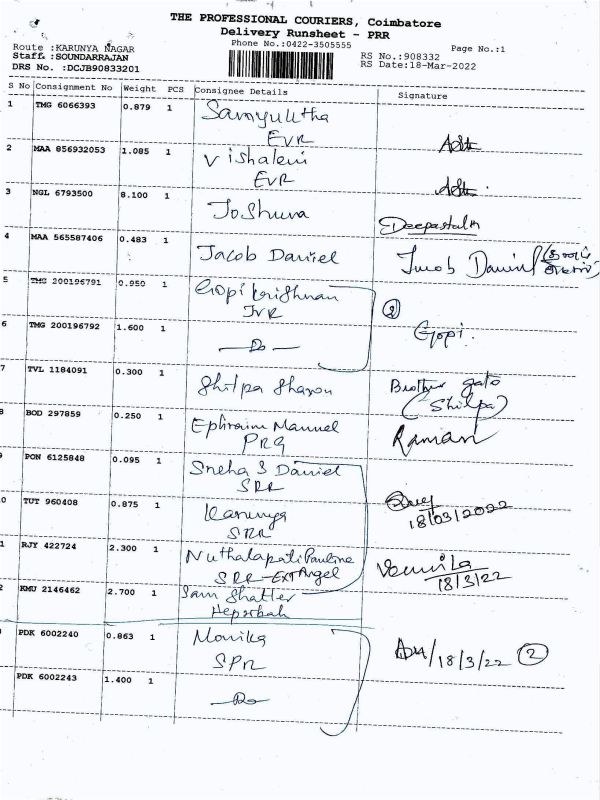 THE PROFESSIONAL COURIERS, Coimbatore
Delivery Runsheet - PRR
Phone No.:0422-3505555
Page No.:1
Route :KARUNYA NAGAR
Staff :SOUNDARRAJAN
DRS No. :DCJB90833201
RS No.:908332
RS Date:18-Mar-2022
S No Consignment No Weight PCS Consignee Details Signature
1 TMG 6066393 0.879 1 Samyuktha
EVR
2 MAA 856932053 1.085 1 Vishaleni
EVR
3 NGL 6793500 8.100 1 Joshuva
4 MAA 565587406 0.483 1 Jacob Daniel Jacob Daniel
5 TMG 200196791 0.950 1 Gopi krishnan
JVR
2
6 TMG 200196792 1.600 1 —Do— Gopi.
7 TVL 1184091 0.300 1 Shilpa Sharon Brother gato
(Shilpa)
8 BOD 297859 0.250 1 Ephraim Manuel Raman
PRG
9 PON 6125848 0.095 1 Sneha S Daniel
SRR
0 TUT 960408 0.875 1 Karunya 18/03/2022
SRR
1 RJY 422724 2.300 1 Nuthalapati Pauline
SRR-EXT Angel 18/3/22
2 KMU 2146462 2.700 1 Sam Shatler
Hepzibah
PDK 6002240 0.863 1 Monika /18/3/22 2
SPR
PDK 6002243 1.400 1 —Do—